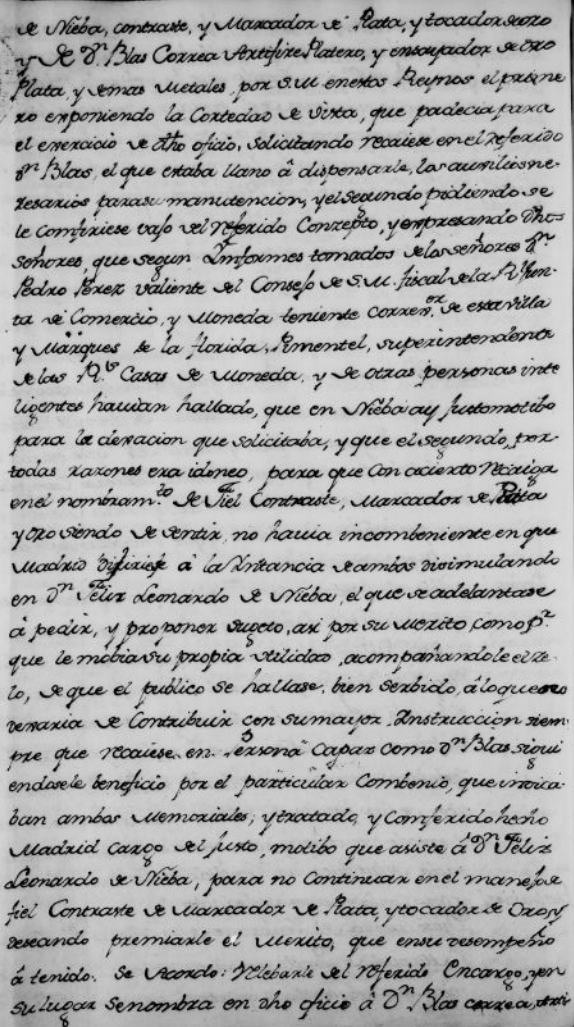 de Nieba, contraste, y Marcador de Plata, y tocador de oro
y de Dn Blas Correa Artifize Platero, y ensayador de oro
Plata, y demas Metales, por S.M. en estos Reynos el prime
ro exponiendo la Cortedad de vista, que padecia para
el exercicio de dho oficio, solicitando recaiese en el referido
Dn Blas, el que estaba llano â dispensarle, los auxilios ne-
zesarios para su manutencion, y el segundo pidiendo se
le comfiriese vajo del referido Conzepto, y expresando dhos
señores, que segun Imformes tomados de los señores Dn
Pedro Perez valiente del Consejo de S.M. fiscal de la Rl Jun-
ta de Comercio, y Moneda teniente Correxor de esta villa
y Marques de la florida, Pimentel, superintendente
de las Rs Casas de Moneda, y de otras personas inte
ligentes havian hallado, que en Nieba ay justo motibo
para la que solicitaba, y que el segundo, por
todas razones era idoneo, para que con acierto recaiga
en el nombramto de Fiel Contraste, Marcador de Plata
y oro siendo de sentir, no havia incombeniente en que
Madrid difiriese â la Instancia de ambos disimulando
en Dn Feliz Leonardo de Nieba, el que se adelantase
â pedir, y proponer sugeto, asi por su merito, como pr
que le mobia su propia utilidad, acompañandole el ze-
lo, de que el publico se hallase, bien serbido, â lo que no
dexaria de Contribuir con su mayor Instruccion siem-
pre que recaiese en Persona capaz como Dn Blas sigui
endosele beneficio por el particular Combenio, que indica-
ban ambos Memoriales; y tratado, y Comferido hecho
Madrid cargo del justo, motibo que asiste â Dn Feliz
Leonardo de Nieba, para no Continuar en el manejo de
fiel Contraste de Marcador de Plata, y tocador de Oro, y
deseando premiarle el Merito, que en su desempeño
â tenido. Se Acordo: Relebarle del referido Encargo, y en
su lugar se nombra en dho oficio â Dn Blas correa, Arti